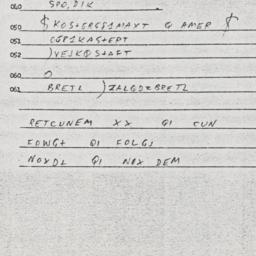 060 SPO, DIK
050 $ KOS+ERGS1MAXT Q AMER $
052 CGP1KAS+EPT
052 )VEJKQS+AFT
060 O
062 BRETL )ZALGD±BRETL
RETCUNEM XX Q1 CUN
EDWG+ Q1 FOLGJ
NOXDL Q1 NOX DEM